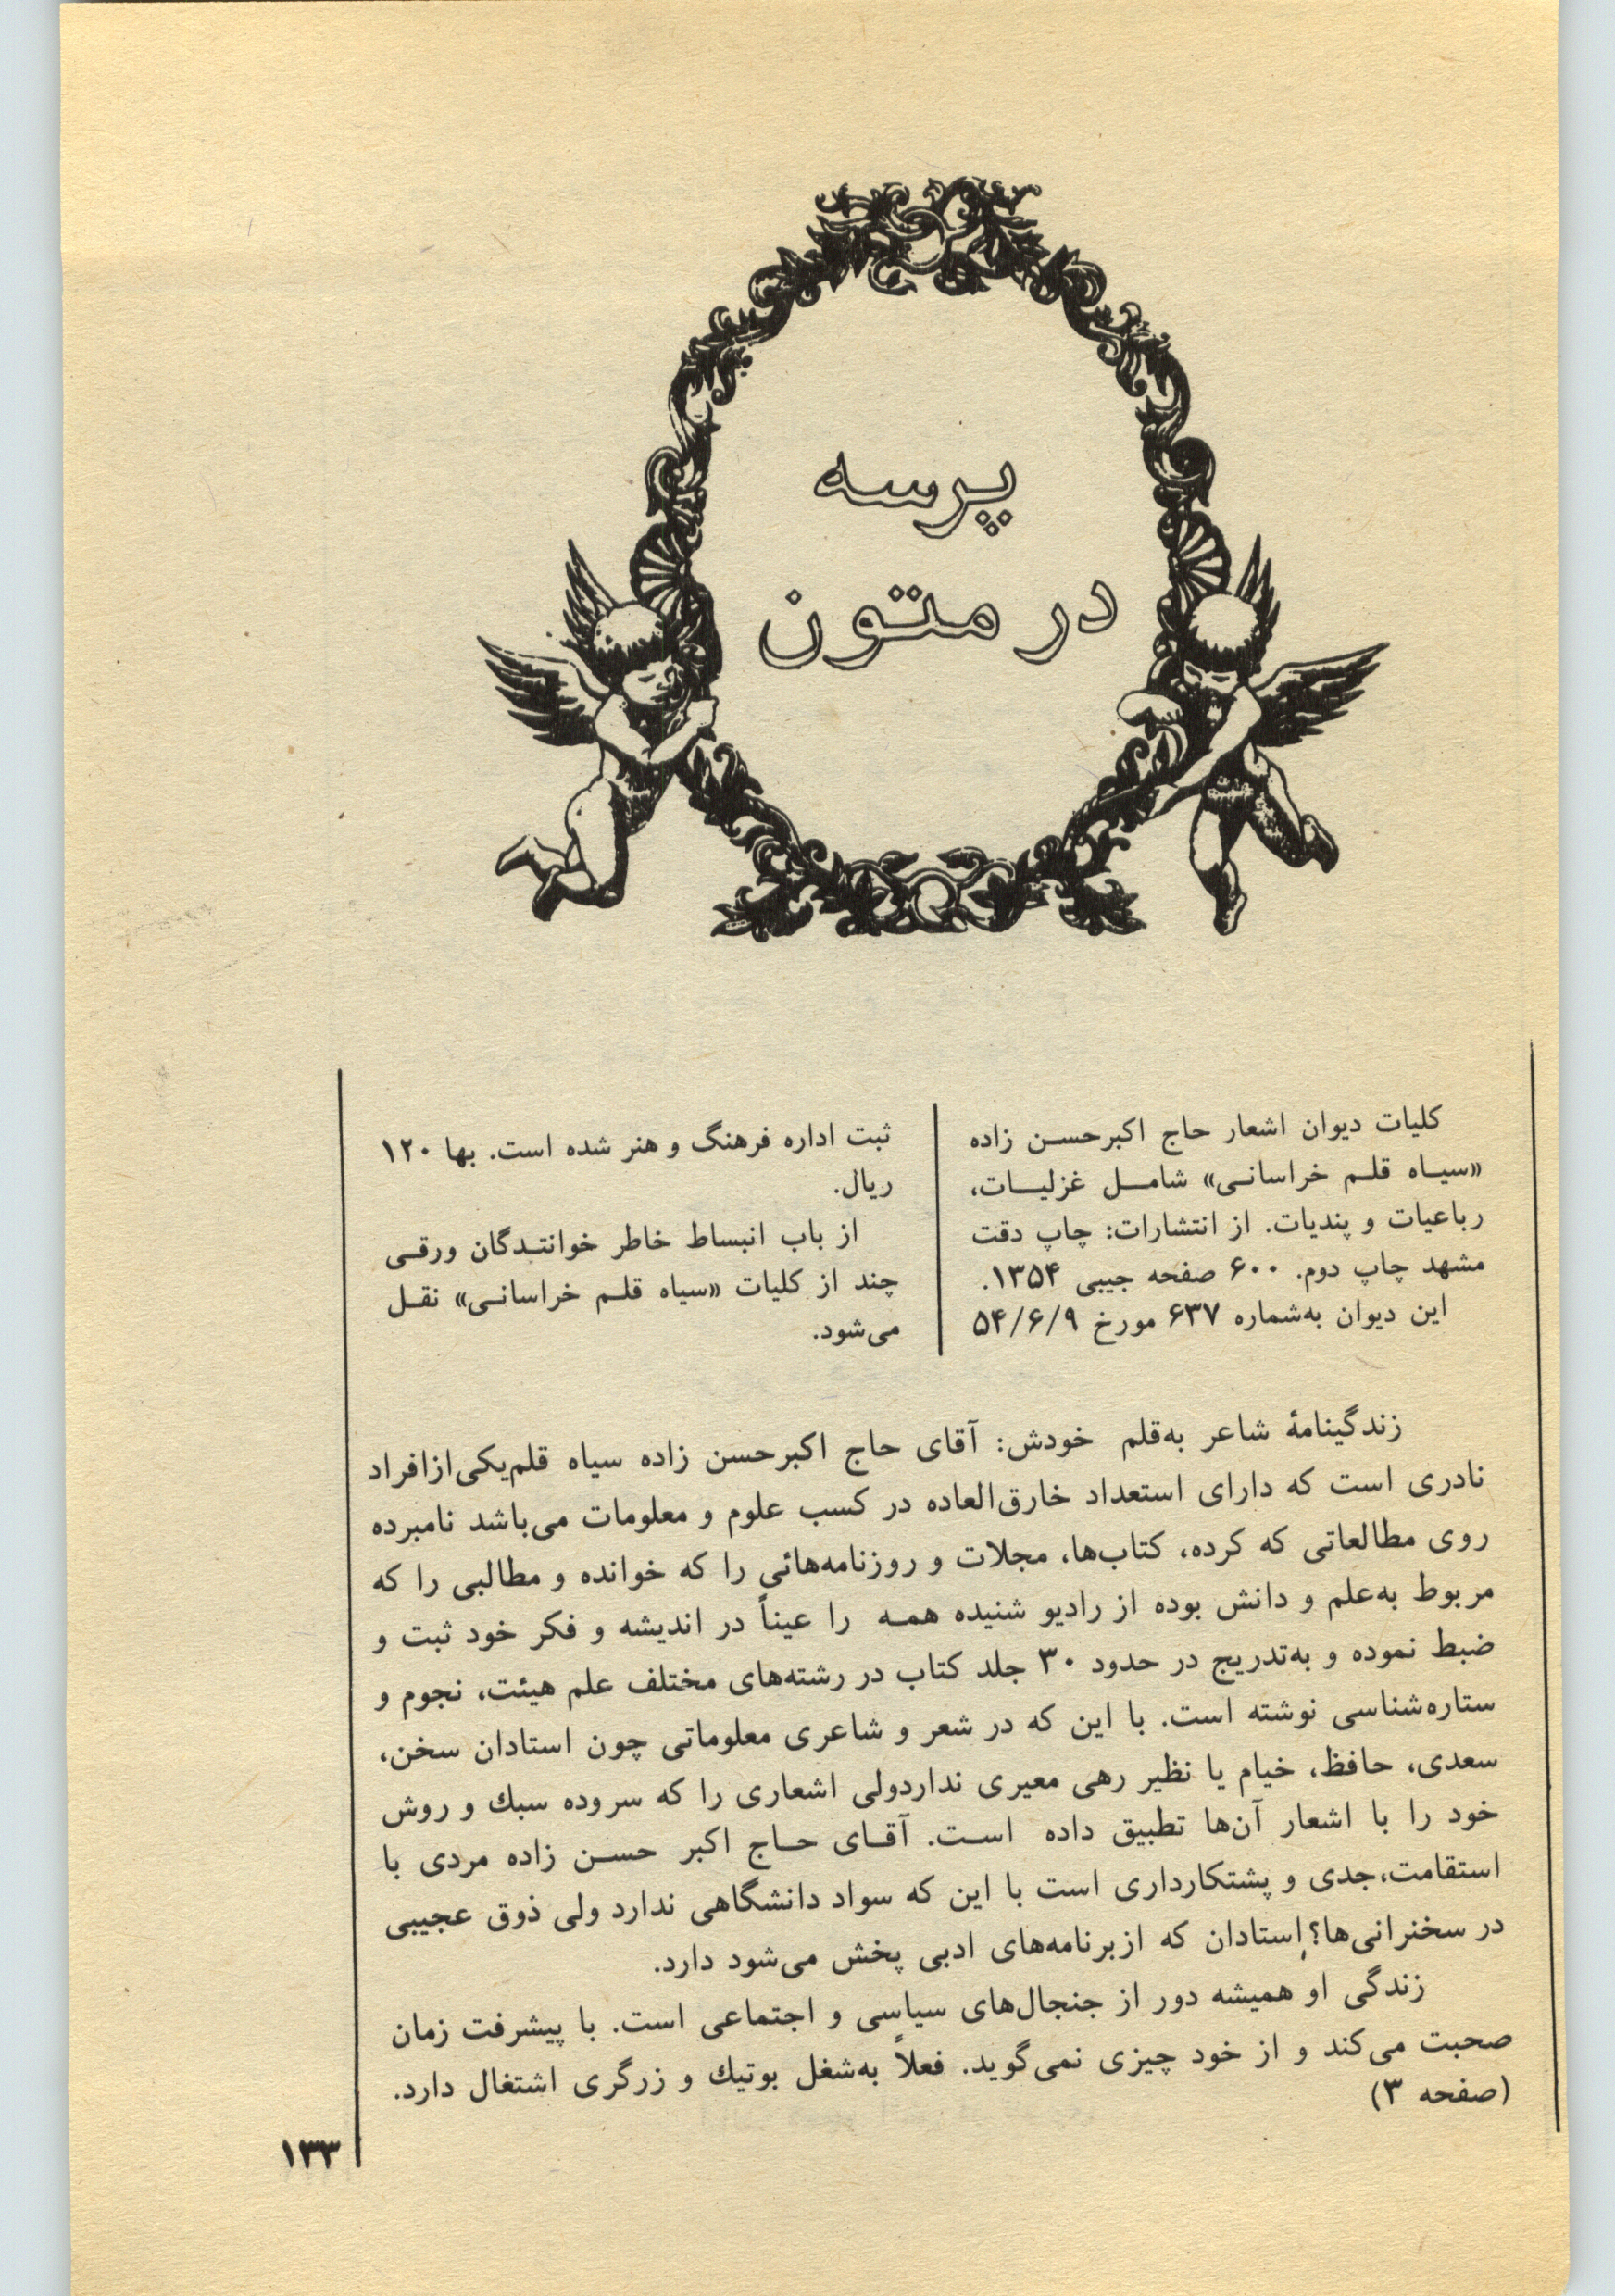 پرسه
در متون
کلیات دیوان اشعار حاج اکبرحسن زاده
«سیاه قلم خراسانی» شامل غزلیات،
رباعیات و پندیات. از انتشارات: چاپ دقت
مشهد چاپ دوم. ۶۰۰ صفحه جیبی ۱۳۵۴.
این دیوان به‌شماره ۶۳۷ مورخ ۵۴/۶/۹
ثبت اداره فرهنگ و هنر شده است. بها ۱۲۰
ریال.
از باب انبساط خاطر خوانندگان ورقی
چند از کلیات «سیاه قلم خراسانی» نقل
می‌شود.
زندگینامهٔ شاعر به‌قلم خودش: آقای حاج اکبرحسن زاده سیاه قلم‌یکی‌ازافراد
نادری است که دارای استعداد خارق‌العاده در کسب علوم و معلومات می‌باشد نامبرده
روی مطالعاتی که کرده، کتاب‌ها، مجلات و روزنامه‌هائی را که خوانده و مطالبی را که
مربوط به‌علم و دانش بوده از رادیو شنیده همه را عیناً در اندیشه و فکر خود ثبت و
ضبط نموده و به‌تدریج در حدود ۳۰ جلد کتاب در رشته‌های مختلف علم هیئت، نجوم و
ستاره‌شناسی نوشته است. با این که در شعر و شاعری معلوماتی چون استادان سخن،
سعدی، حافظ، خیام یا نظیر رهی معیری نداردولی اشعاری را که سروده سبك و روش
خود را با اشعار آن‌ها تطبیق داده است. آقای حاج اکبر حسن زاده مردی با
استقامت،جدی و پشتکارداری است با این که سواد دانشگاهی ندارد ولی ذوق عجیبی
در سخنرانی‌ها؟ِاستادان که ازبرنامه‌های ادبی پخش می‌شود دارد.
زندگی او همیشه دور از جنجال‌های سیاسی و اجتماعی است. با پیشرفت زمان
صحبت می‌کند و از خود چیزی نمی‌گوید. فعلاً به‌شغل بوتیك و زرگری اشتغال دارد.
(صفحه ۳)
۱۳۳